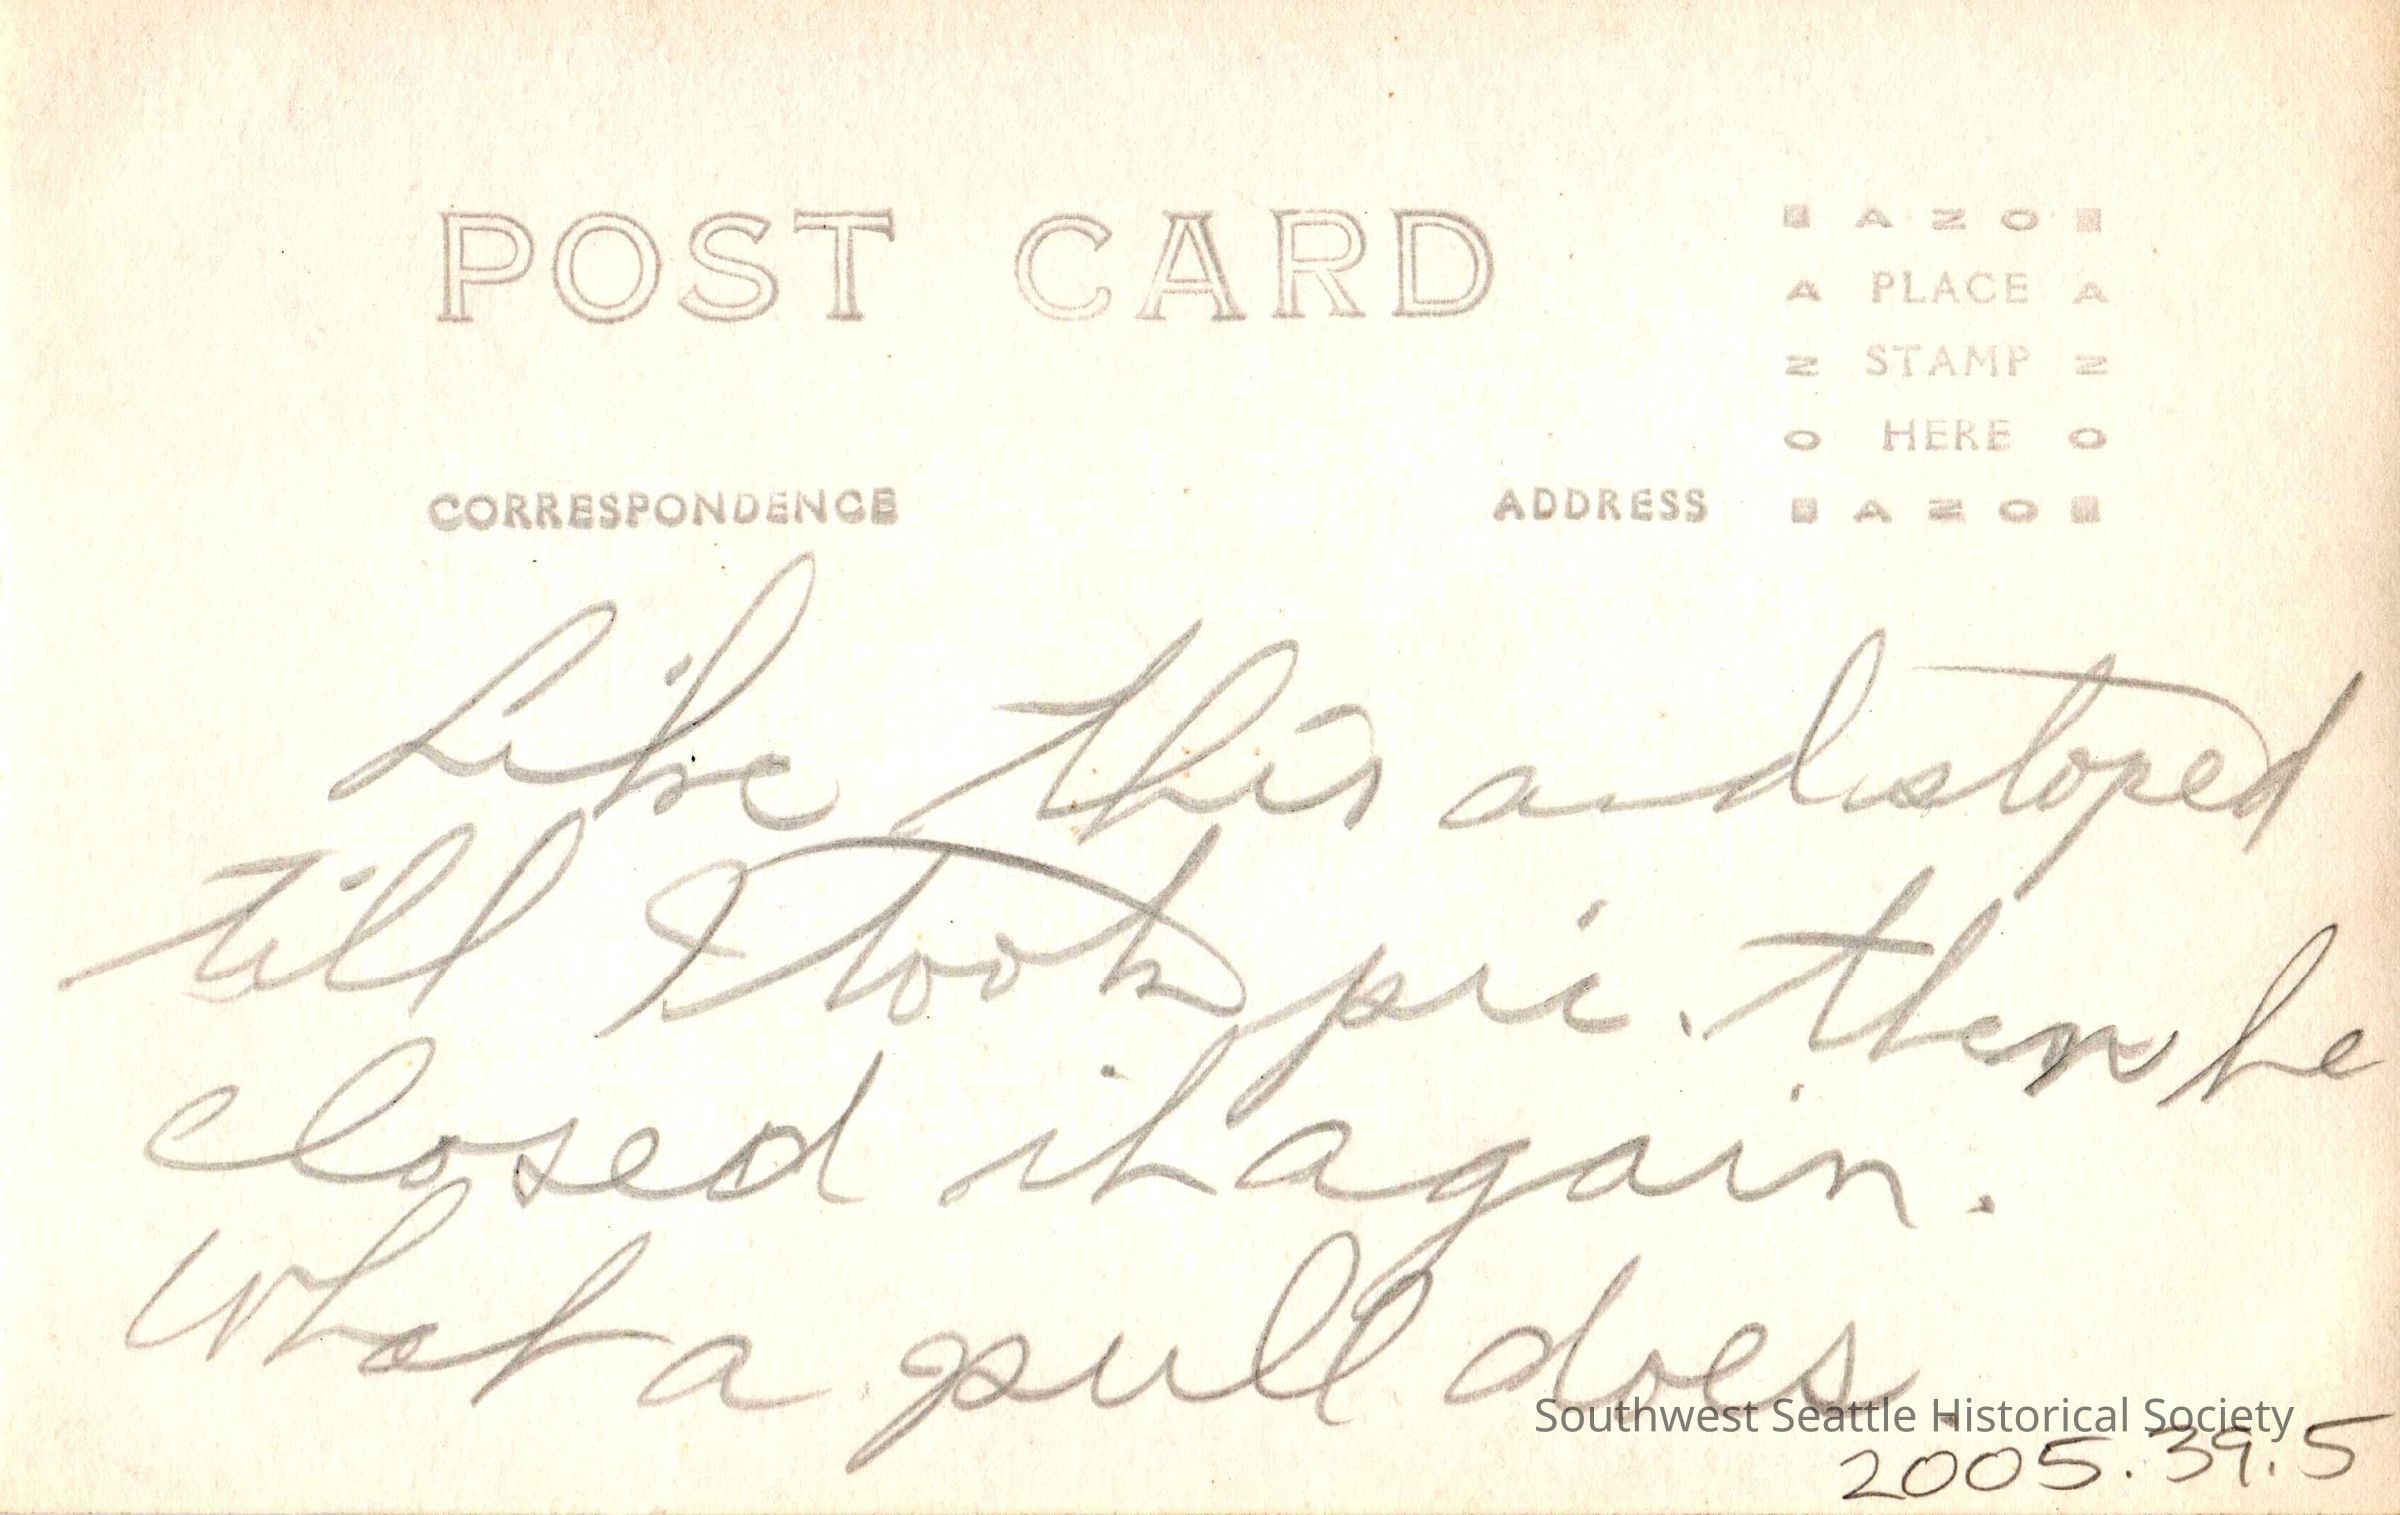 POST CARD
AZO
A PLACE A
N STAMP N
O HERE O
CORRESPONDENCE ADDRESS AZO
Like this and stoped
till I took pic. then he
closed it again.
What a pull does.
Southwest Seattle Historical Society
2005.39.5